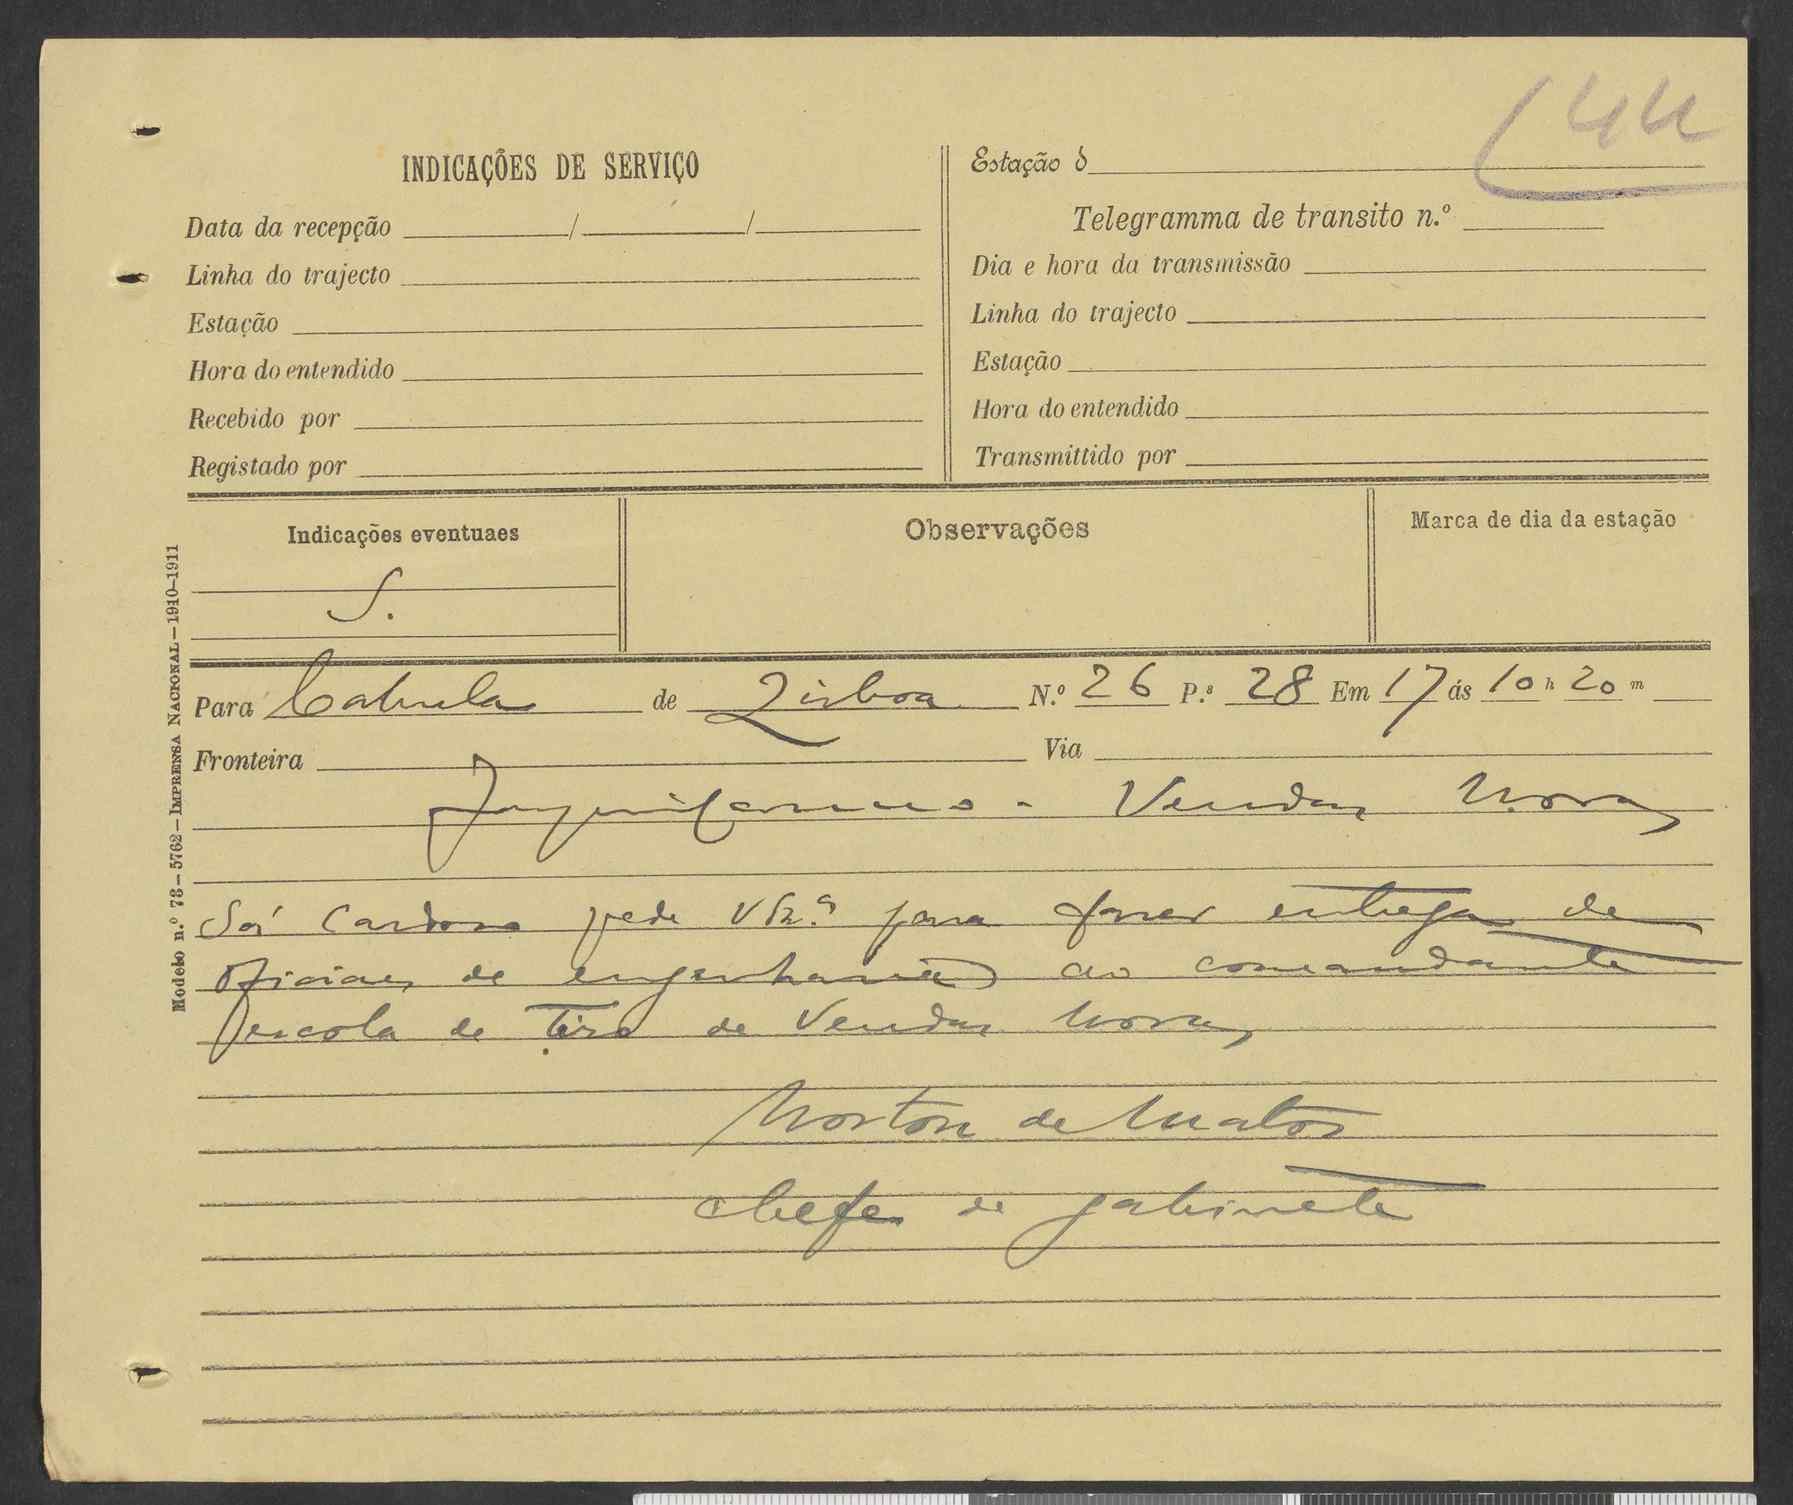 44
INDICAÇÕES DE SERVIÇO
Data da recepção / /
Linha do trajecto
Estação
Hora do entendido
Recebido por
Registado por
Estação d
Telegramma de transito n.º
Dia e hora da transmissão
Linha do trajecto
Estação
Hora do entendido
Transmittido por
Indicações eventuaes
S.
Observações
Marca de dia da estação
Modelo n.º 73—5762—IMPRENSA NACIONAL—1910-1911
Para Cabrela de Lisboa N.º 26 P.s 28 Em 17 ás 10 h 20 m
Fronteira Via
Vendas Novas
Sá Cardoso pede V Ex.ª para fazer entrega de
oficiaes de engenharia ao comandante
escola de Tiro de Vendas Novas
Norton de Matos
chefe de gabinete